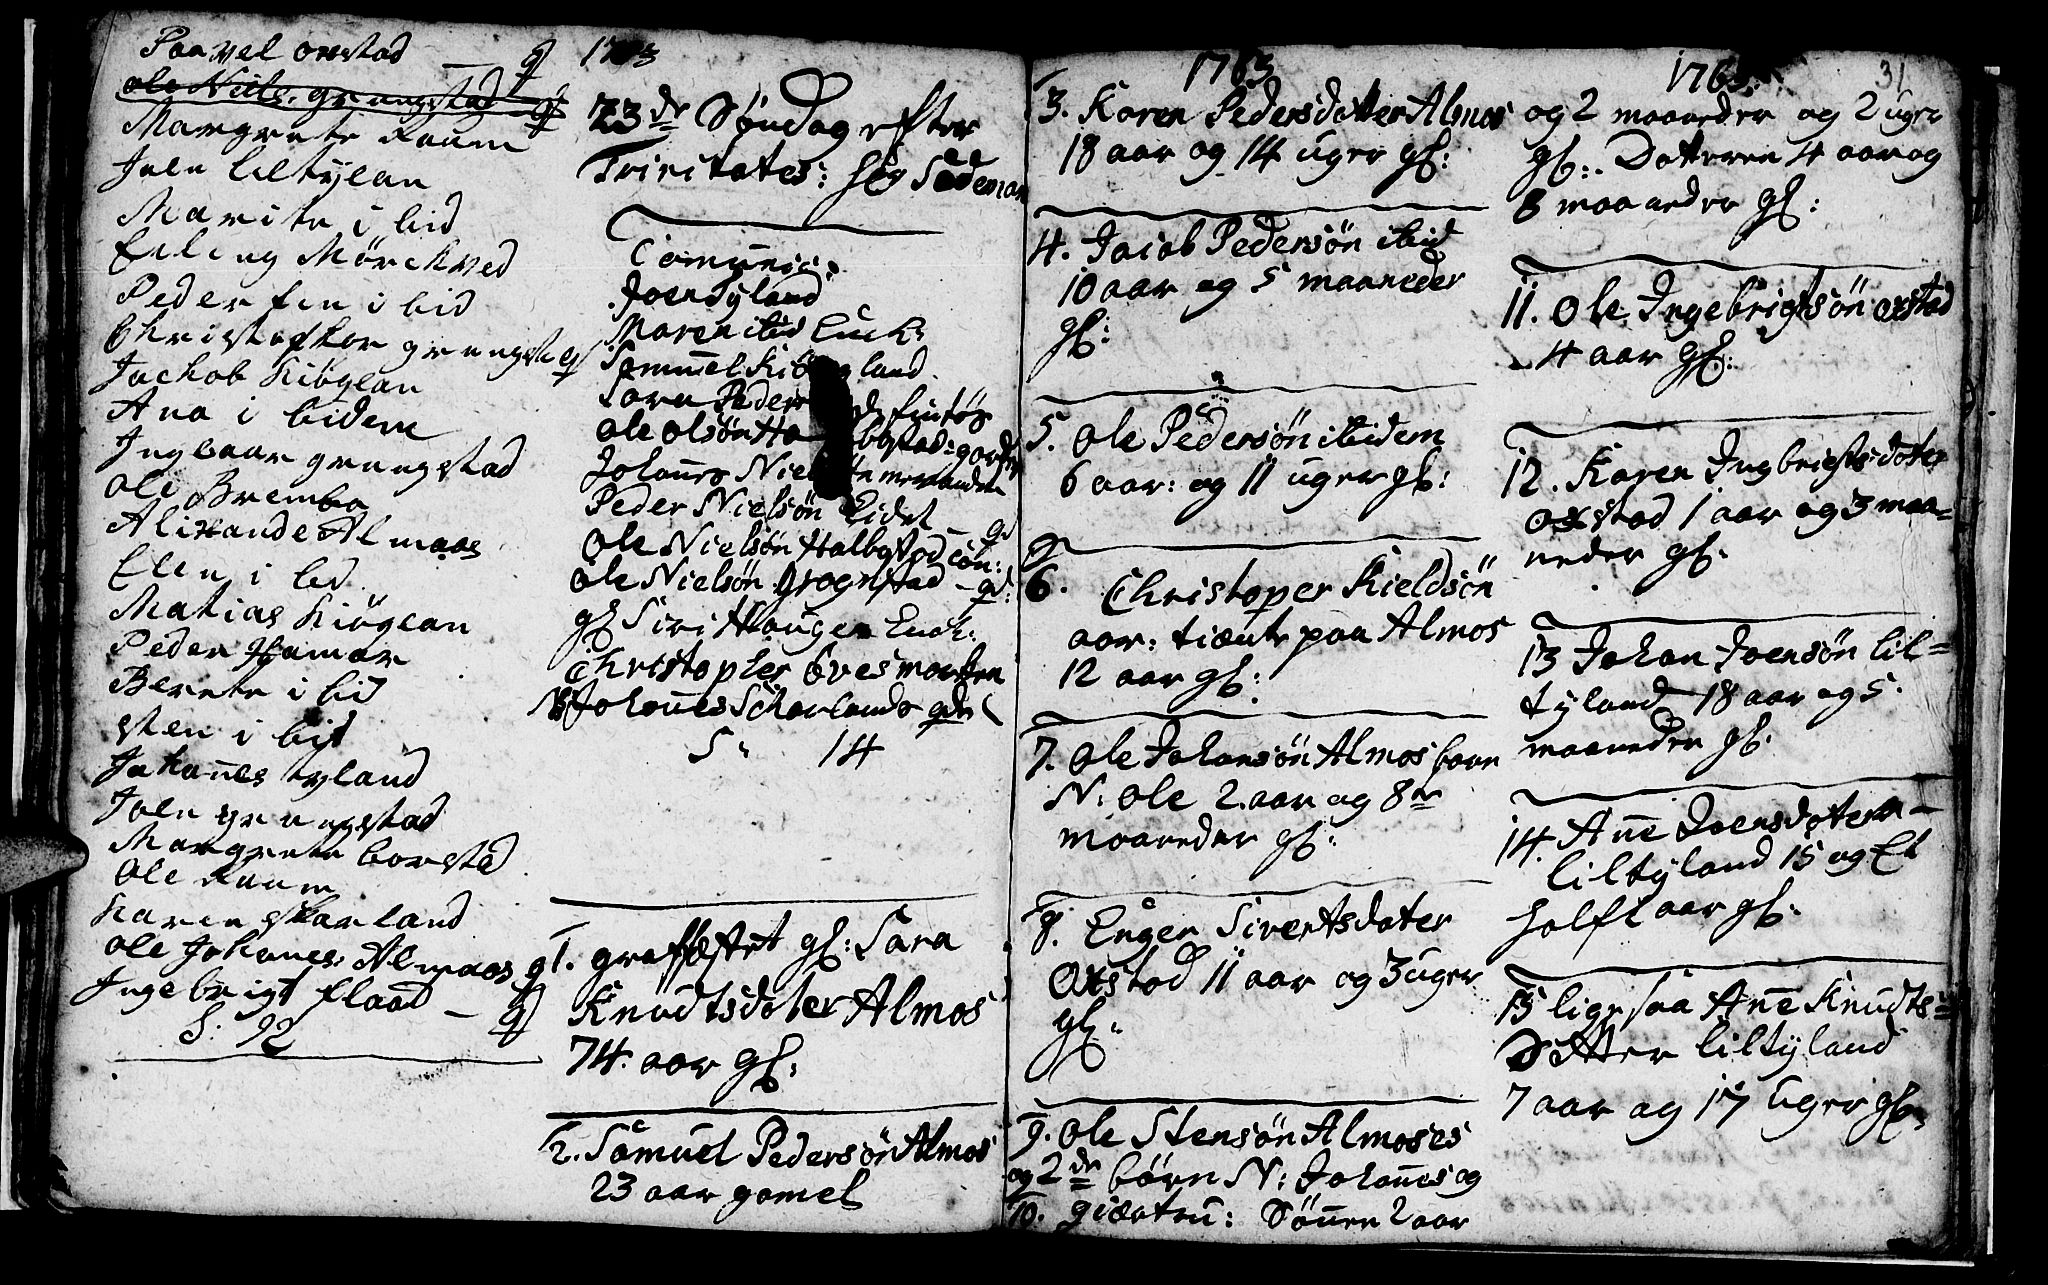 Paavel oxstad _ g
ole Niels. grangstad g
Margrete Raum
Joln liltylan
Marite i bid
Erling Mørchved
Peder fin i bid
Christoffor grangst g
Jachob Kiøglan
Ana i bidem
Ingbaar grangstad
ole Brembo
Alixande Almaas
Elen i bid
Matias Kiøglan
Peder Hamar
Berete i bid
sten i bit
Johañes tyland
Joln grangstad
Margrete borstad
ole Raum
Karen skarland
ole Johanes. Almaas g
Ingebrigt flaad _ g
S: 92
1763
23de Søndag efter
Trinitates:
Comunic:
Joen Tyland
Maren ibid Enck:
Sammel Kiø land
Sara Peders
ole olsøn
Johanes Niel
Peder Nielsøn Eidet
Ole Nielsøn Halbstad
ole Nielsøn grognstad - gd:
gl Siri Haugen Enck:
Christopher øvesmarken
Johañes Scharlands
S: 14
1. graffæstet gl: Sara
Knudtsdater Almos
74. aar gl:
2. Samuel Pedersøn Almos
23 aar gamel
1763
3. Karen Pedersdatter Almos
18 aar og 14 uger gl:
4. Jacob Pedersøn ibid
10 aar og 5 maaneder
gl:
5. ole Pedersøn ibidem
6 aar: og 11 uger gl:
6. Christoper Kieldsøn
aar: tiente paa Almos
12 aar gl:
7. ole Johansøn Almos barn
N: ole 2 aar og 8te
maaneder gl:
8. Engen Sivertsdater
Oxstad 11 aar og 3 uger
gl:
9. ole Stensøn Almoses
og 2de børn N: Johañes og
10. giærtru: Sønen 2 aar
1763. 31
og 2 maaneder og 2 uger
gl: Datteren 4 aar og
8 maaneder gl:
11. ole Ingebrigtsøn oxstad
4 aar gl:
12. Karen Ingbrigts-dater
oxstad 1 aar og 3 maa=
neder gl:
13 Johan Joensøn lil=
tyland 18 aar og 5.
maaneder gl:
14. Añe Joensdater
liltyland 15 og Et
halft aar gl:
15 ligesaa Añe Knudts=
Datter liltyland
7 aar og 17 uger gl: